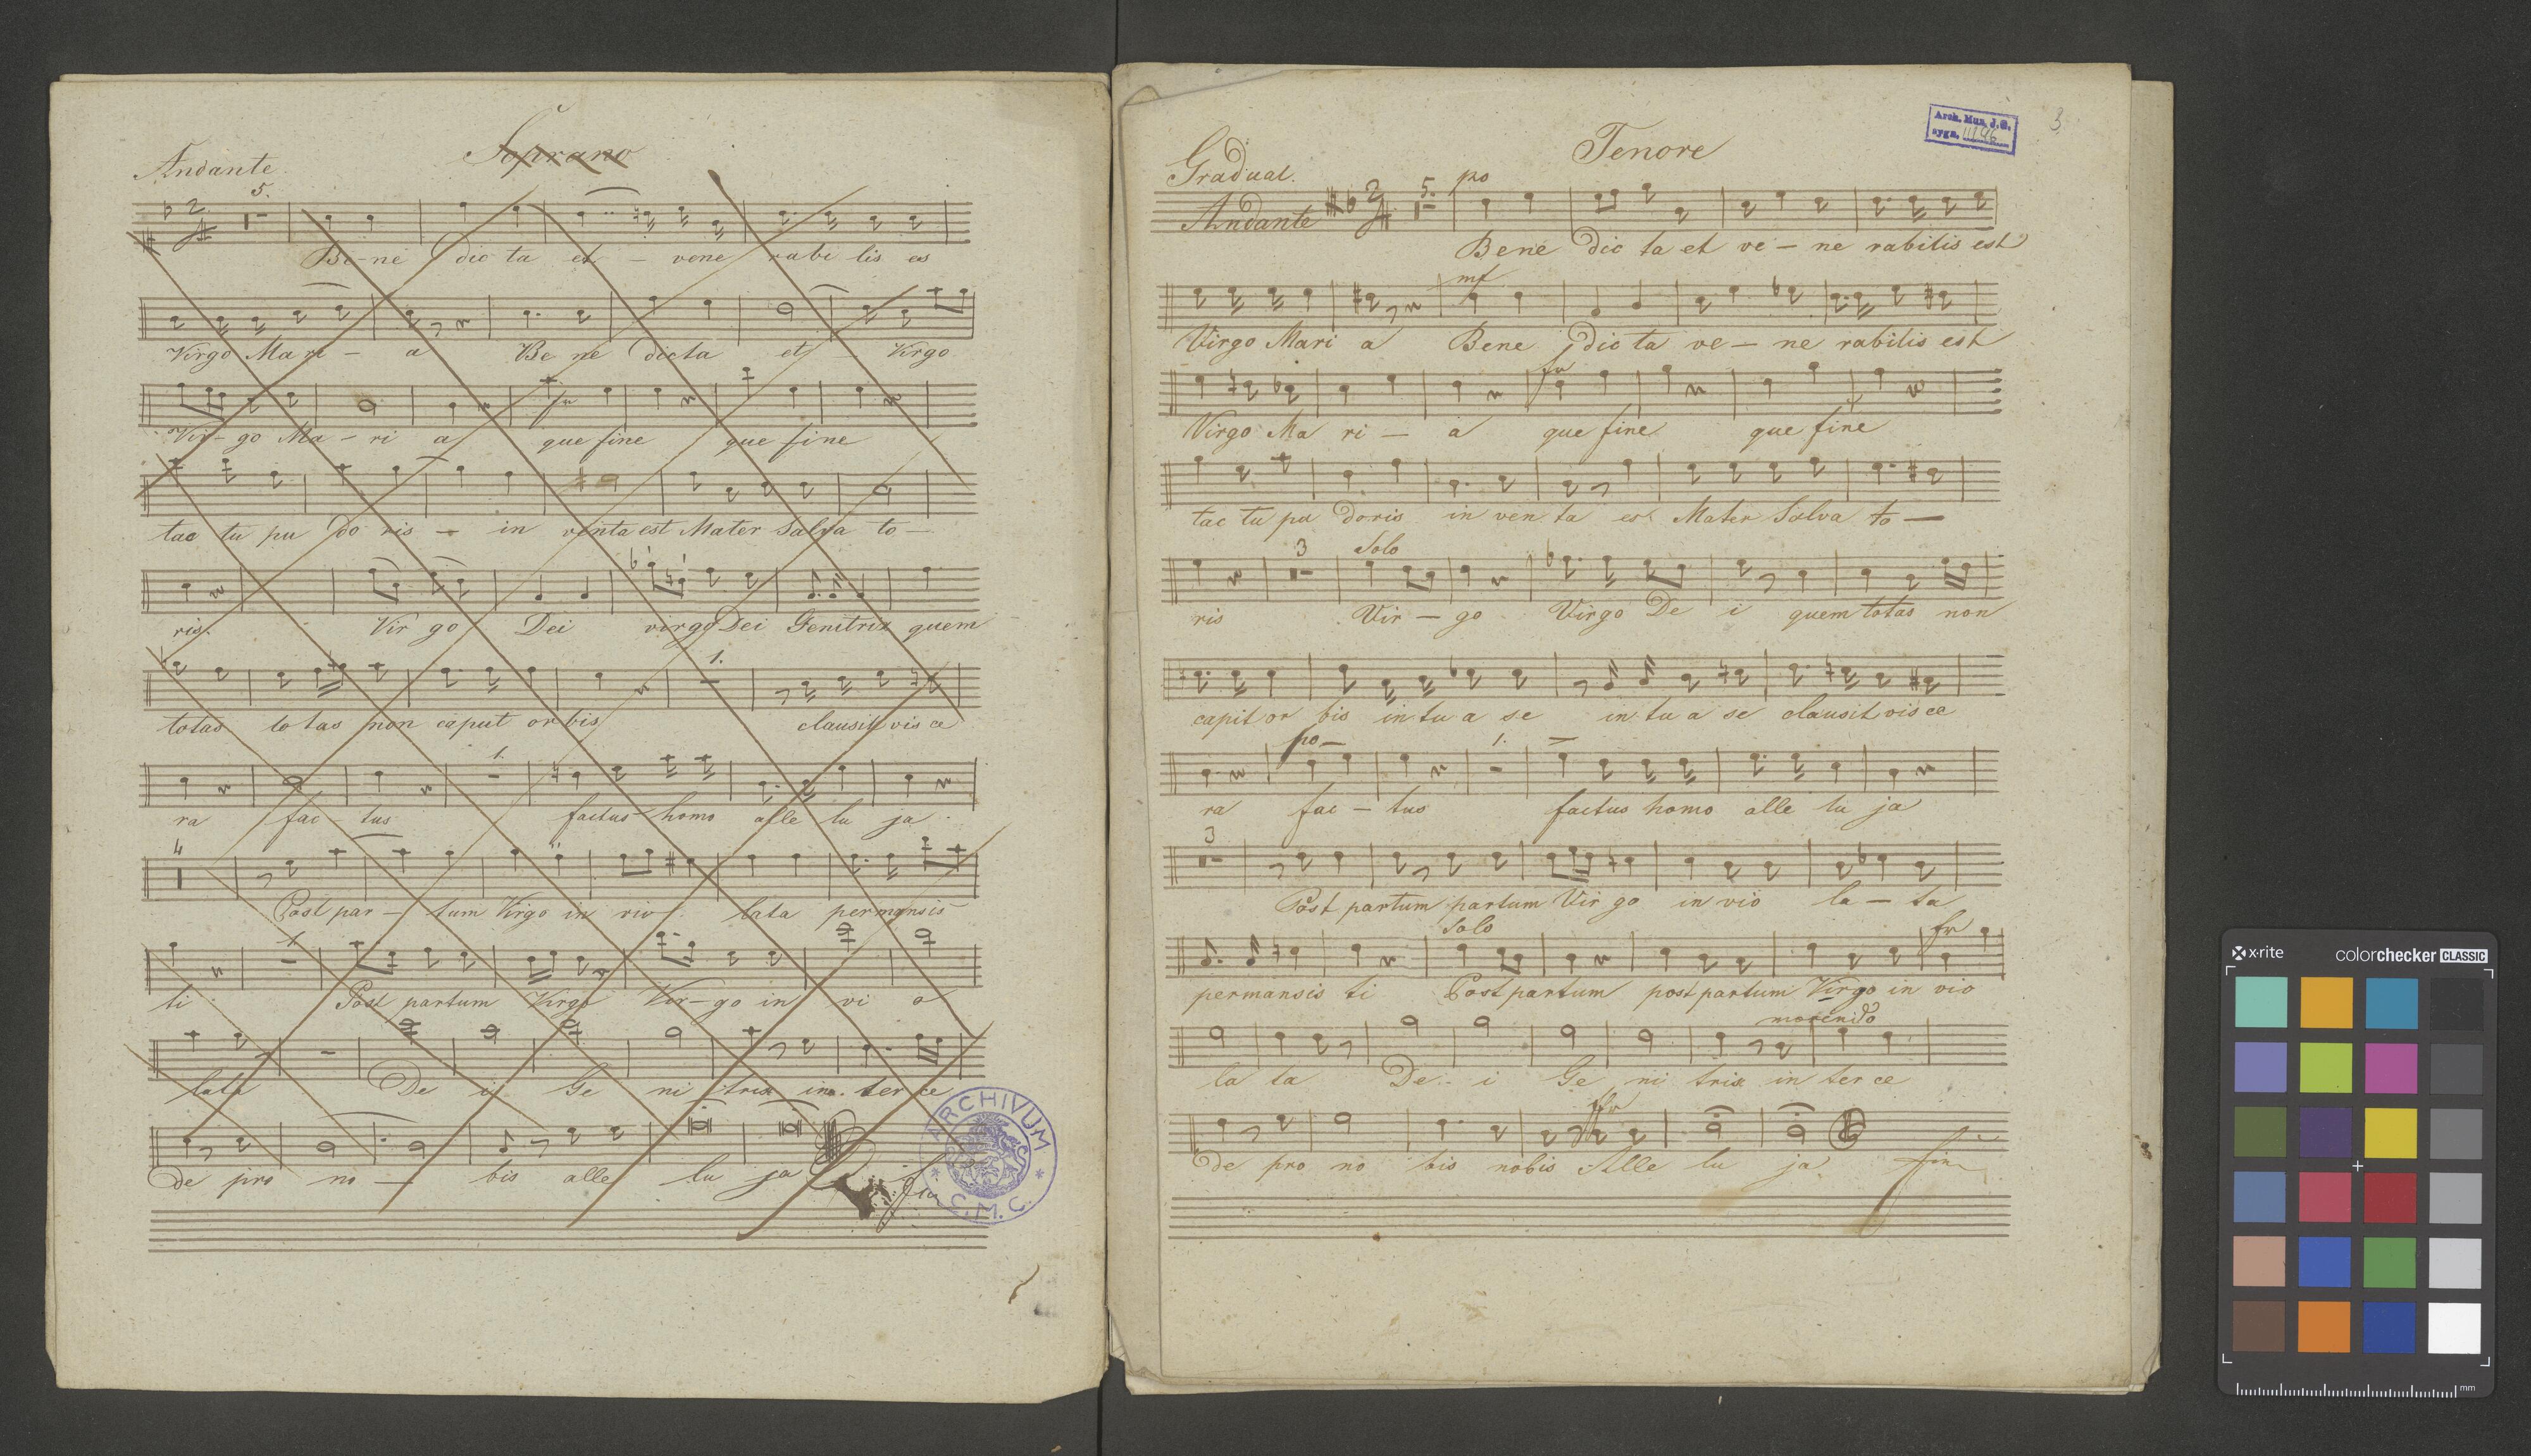 Soprano
Andante
5.
Be-ne dic ta et - vene rabi lis es
Virgo Ma ri - a Be ne dicta et Virgo
fr
Vir-go Ma-ri a que fine que fine
tac tu pu do ris - in venta est Mater Salva to-
ris. Vir go Dei virgo Dei Genitrix quem
1.
totas to tas non caput orbis clausit vis ce
1.
ra fac-tus factus homo alle lu ja
4
Post par-tum Virgo in vio lata permansis
1
ti Post partum Virgo Vir-go in vi o
lata De i Ge ni trix in. ter ce
de pro no- bis alle lu ja fin
ARCHIVUM C.M.C.
Arch. Mus. J.G.
sygn.
3
Tenore
Gradual.
Andante 2 5. po
Bene dic ta et ve-ne rabilis est
mf
Virgo Mari a Bene dic ta ve-ne rabilis est
fr
Virgo Ma ri-a que fine que fine
tac tu pu doris in ven ta est Mater Salva to-
3 Solo
ris Vir-go Virgo De i quem totas non
capit or bis in tu a se in tu a se clausit vis ce
po- 1. >
ra fac-tus factus homo alle lu ja
3
Post partum partum Vir go in vio la-ta
Solo fr
permansis ti Post partum post partum Virgo in vio
morendo
la ta De.. i Ge ni trix in ter ce
de pro no bis nobis Alle lu ja fin
x-rite colorchecker CLASSIC
mm